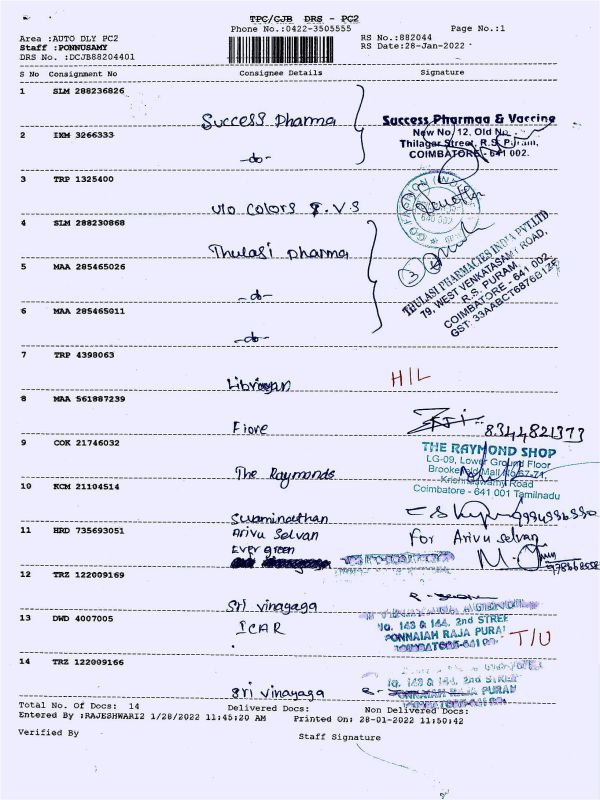 TPC/CJB DRS - PC2
Phone No.:0422-3505555
Page No.:1
Area :AUTO DLY PC2
RS No.:882044
Staff :PONNUSAMY
RS Date:28-Jan-2022
DRS No. :DCJB88204401
S No Consignment No Consignee Details Signature
1 SLM 288236826
Success Pharma
Success Pharmaa & Vaccine
New No. 12, Old No.
2 IXM 3266333
Thilagar Street, R.S. Puram,
COIMBATORE - 641 002.
-do-
3 TRP 1325400
v/o Colors T.V.S
4 SLM 288230868
Thulasi pharma
THULASI PHARMACIES INDIA PVT.LTD
79, WEST VENKATASAMY ROAD,
R.S. PURAM,
COIMBATORE - 641 002
5 MAA 285465026
-do-
6 MAA 285465011
-do-
7 TRP 4398063
H/L
8 MAA 561887239
Fiore
8344821373
9 COK 21746032
THE RAYMOND SHOP
LG-09, Lower Ground Floor
Brookefield Mall No.67-71,
Krishnaswamy Road
Coimbatore - 641 001 Tamilnadu
The Raymonds
10 KCM 21104514
Swaminathan
11 HRD 735693051
Arivu Selvan
For Arivu selvan
Ever green
12 TRZ 122009169
Sri vinagaga
13 DWD 4007005
ICAR
No. 143 & 144, 2nd STREE
PONNAIAH RAJA PURA
T/U
14 TRZ 122009166
No. 143 & 144, 2nd STREE
PONNAIAH RAJA PURAM
Sri vinayaga
Total No. Of Docs: 14 Delivered Docs: Non Delivered Docs:
Entered By :RAJESHWARI2 1/28/2022 11:45:20 AM Printed On: 28-01-2022 11:50:42
Verified By
Staff Signature